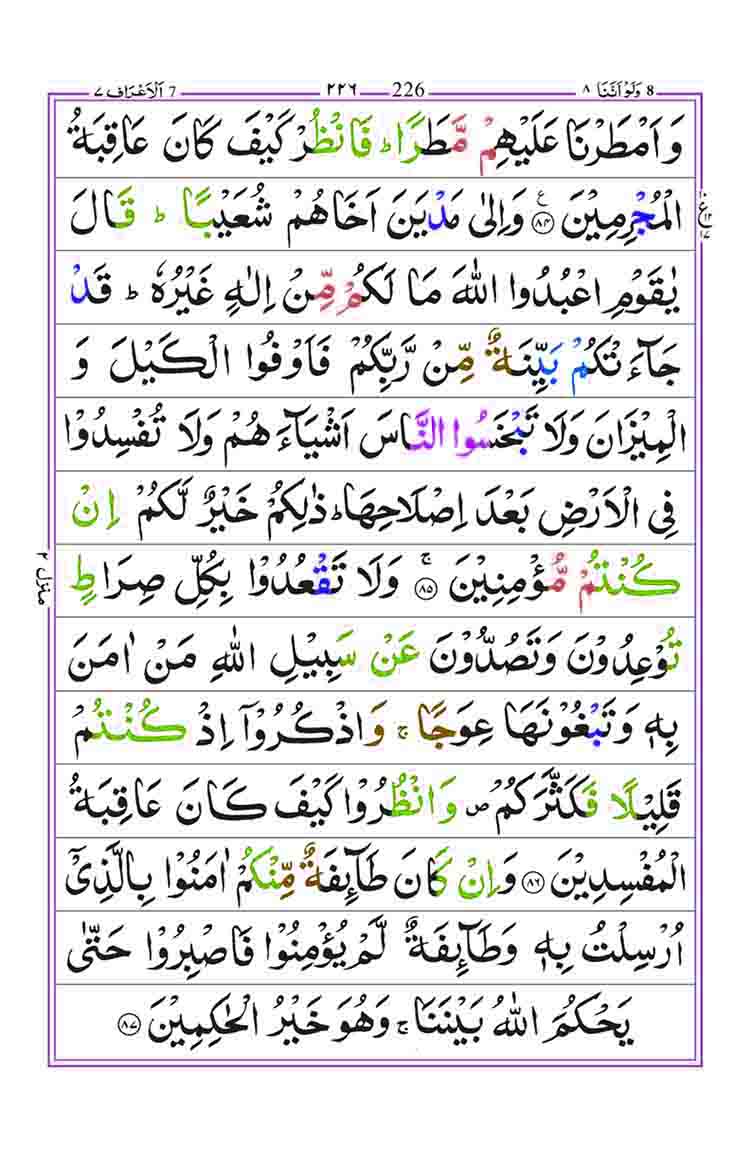 ٧ اَلْاَعْرَاف 7 ٢٢٦ 226 ٨ وَلَوْ اَنَّنَا 8
وَ اَمْطَرْنَا عَلَيْهِمْ مَّطَرًا ؕ فَانْظُرْ كَيْفَ كَانَ عَاقِبَةُ
الْمُجْرِمِيْنَ ۟ع ٨٤ وَاِلٰى مَدْيَنَ اَخَاهُمْ شُعَيْبًا ؕ قَالَ
يٰقَوْمِ اعْبُدُوا اللّٰهَ مَا لَكُمْ مِّنْ اِلٰهٍ غَيْرُهٗ ؕ قَدْ
جَآءَتْكُمْ بَيِّنَةٌ مِّنْ رَّبِّكُمْ فَاَوْفُوا الْكَيْلَ وَ
الْمِيْزَانَ وَلَا تَبْخَسُوا النَّاسَ اَشْيَآءَهُمْ وَلَا تُفْسِدُوْا
فِى الْاَرْضِ بَعْدَ اِصْلَاحِهَا ؕ ذٰلِكُمْ خَيْرٌ لَّكُمْ اِنْ
كُنْتُمْ مُّؤْمِنِيْنَ ۚ ٨٥ وَلَا تَقْعُدُوْا بِكُلِّ صِرَاطٍ
تُوْعِدُوْنَ وَتَصُدُّوْنَ عَنْ سَبِيْلِ اللّٰهِ مَنْ اٰمَنَ
بِهٖ وَتَبْغُوْنَهَا عِوَجًا ۚ وَاذْكُرُوْۤا اِذْ كُنْتُمْ
قَلِيْلًا فَكَثَّرَكُمْ ص وَانْظُرُوْا كَيْفَ كَانَ عَاقِبَةُ
الْمُفْسِدِيْنَ ٨٦ وَاِنْ كَانَ طَآئِفَةٌ مِّنْكُمْ اٰمَنُوْا بِالَّذِىْۤ
اُرْسِلْتُ بِهٖ وَطَآئِفَةٌ لَّمْ يُؤْمِنُوْا فَاصْبِرُوْا حَتّٰى
يَحْكُمَ اللّٰهُ بَيْنَنَا ۚ وَهُوَ خَيْرُ الْحٰكِمِيْنَ ٨٧
منزل ٢